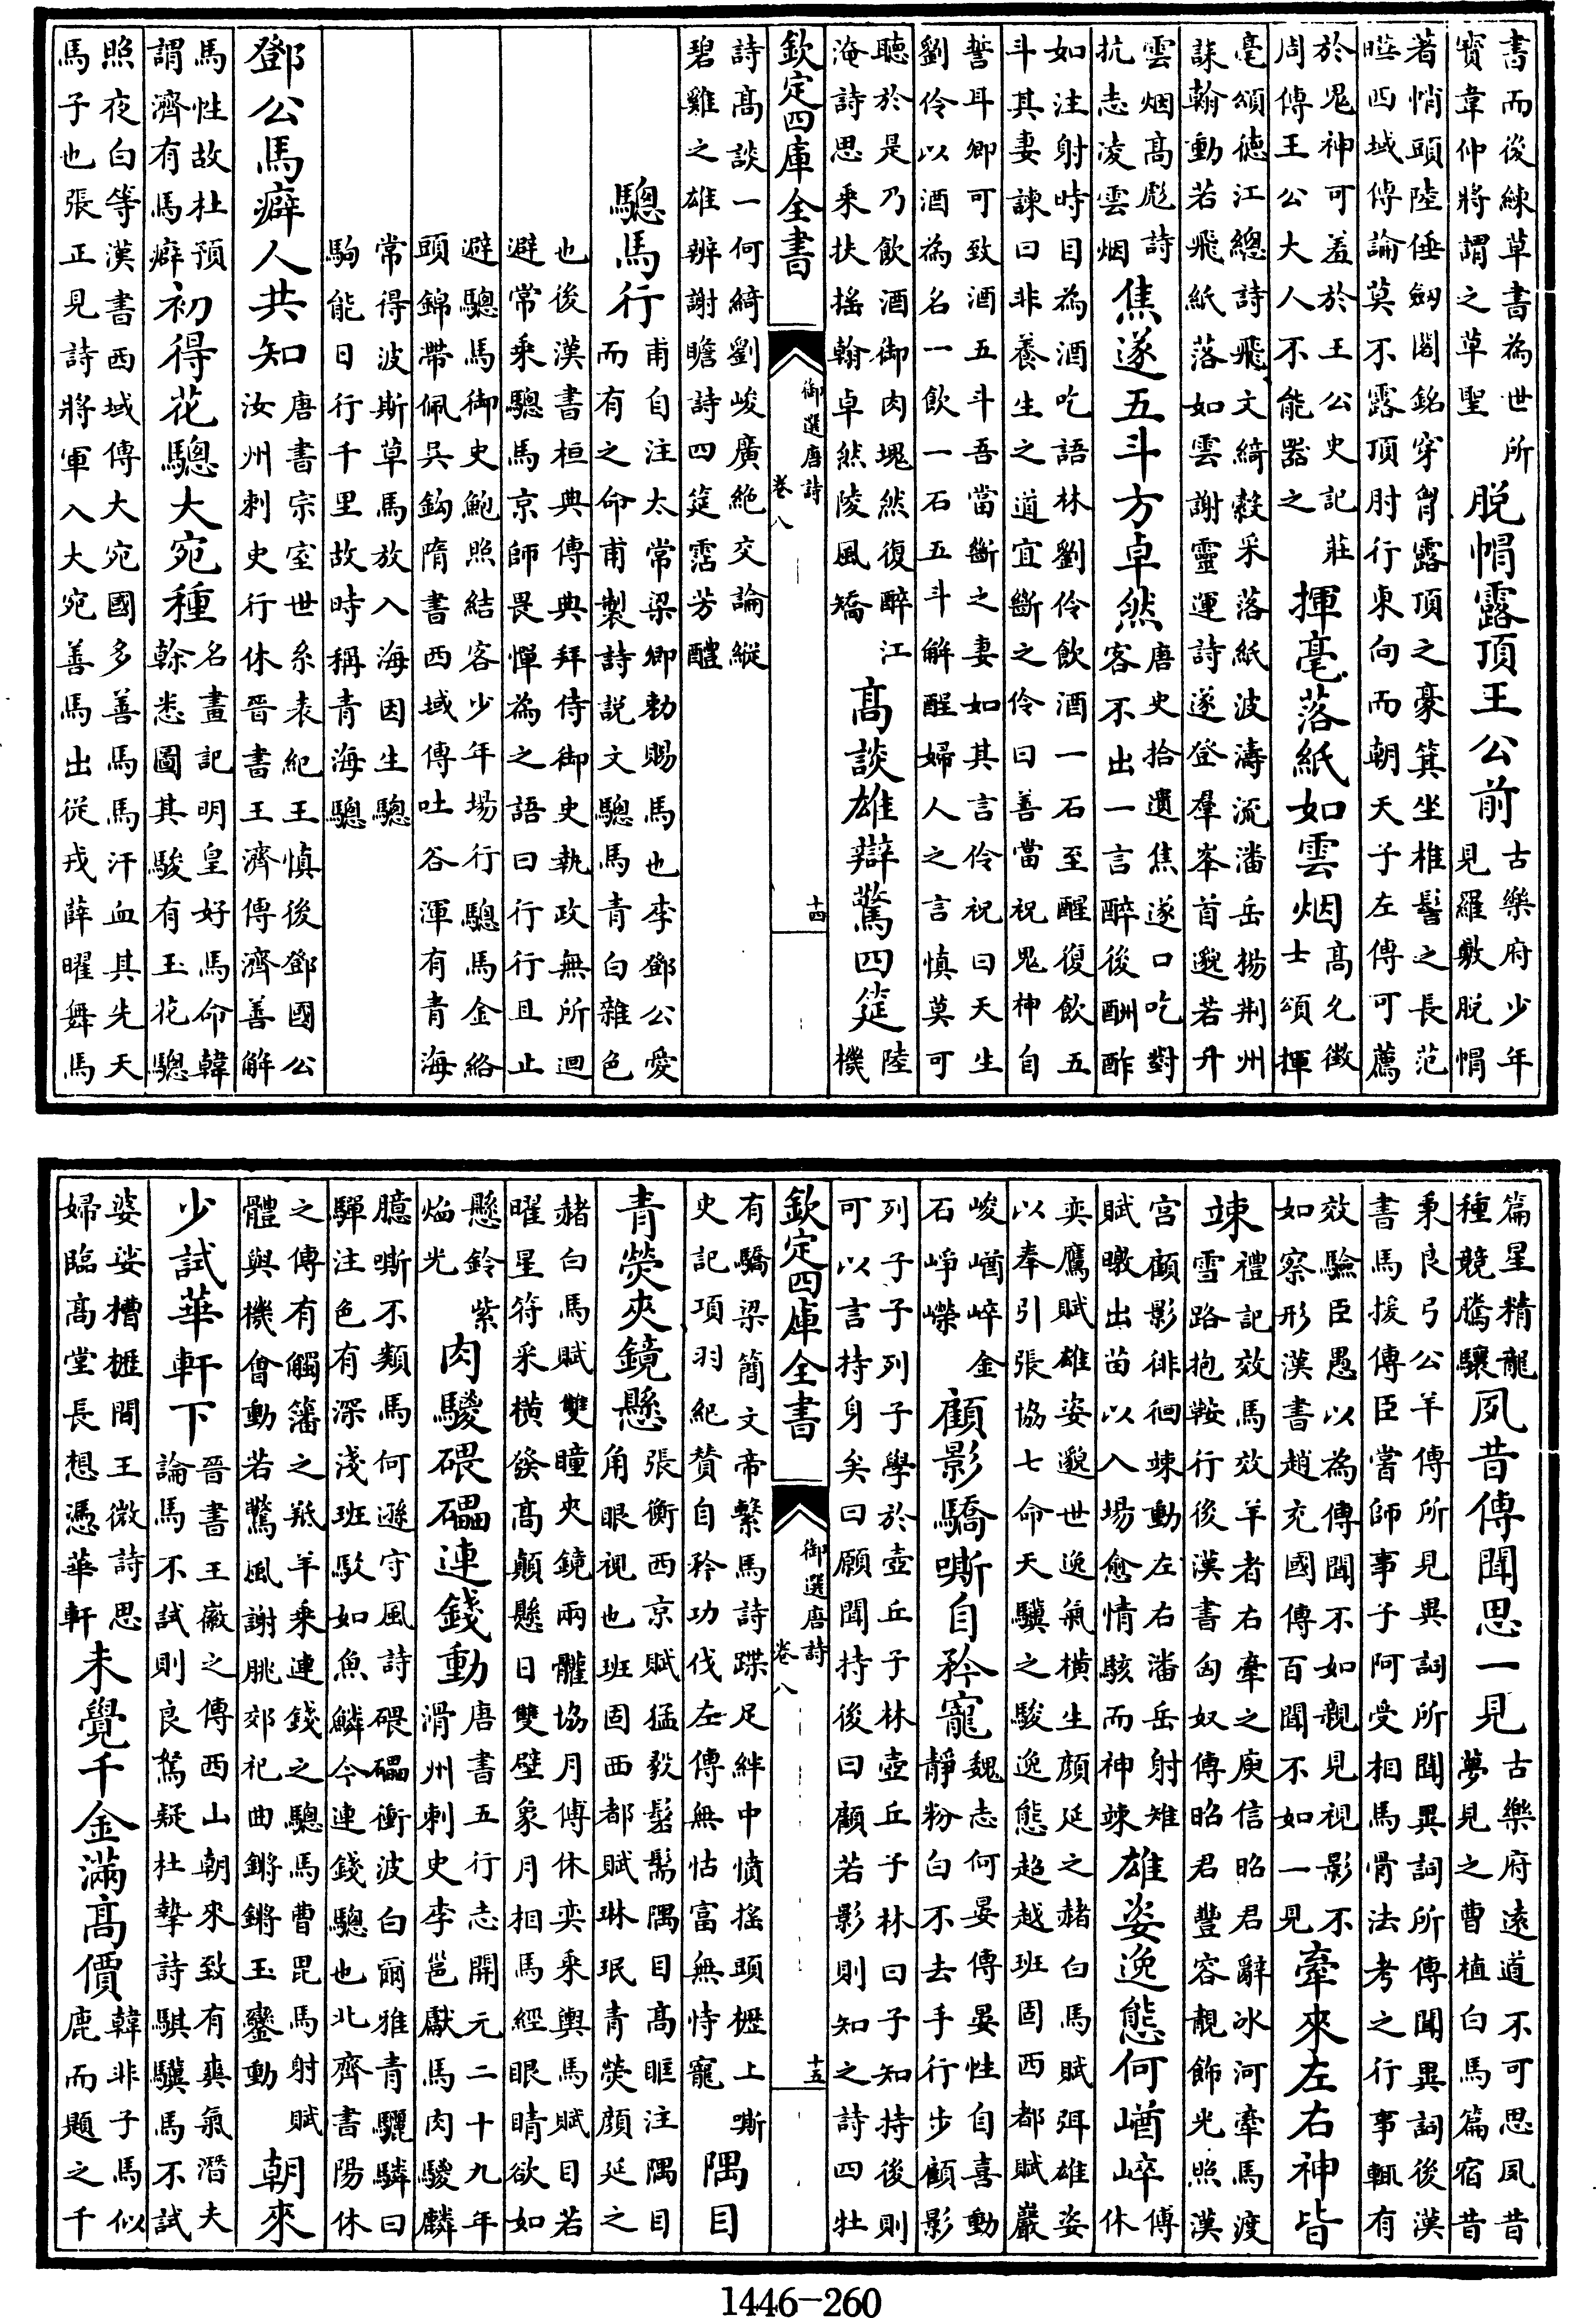 書而後練草書為世所
寳韋仲將謂之草聖
脱帽露頂王公前
古樂府少年
見羅敷脱帽
著悄頭陸倕劒閣銘穿胷露頂之豪箕坐椎髻之長范
曄西域傳論莫不露頂肘行東向而朝天子左傳可薦
於鬼神可羞於王公史記莊
周傳王公大人不能器之
揮毫落紙如雲烟
高允徴
士頌揮
毫頌徳江總詩飛文綺縠采落紙波濤流潘岳揚荆州
誄翰動若飛紙落如雲謝靈運詩遂登羣峯首邈若升
雲烟高彪詩
抗志凌雲烟
焦遂五斗方卓然
唐史拾遺焦遂口吃對
客不出一言醉後酬酢
如注射時目為酒吃語林劉伶飲酒一石至醒復飲五
斗其妻諫曰非養生之道宜斷之伶曰善當祝鬼神自
誓耳卿可致酒五斗吾當斷之妻如其言伶祝曰天生
劉伶以酒為名一飲一石五斗解酲婦人之言慎莫可
聽於是乃飲酒御肉塊然復醉江
淹詩思乘扶摇翰卓然陵風矯
高談雄辯驚四筵
陸
機
欽定四庫全書
御選唐詩
卷八
十四
詩高談一何綺劉峻廣絶交論縱
碧雞之雄辨謝瞻詩四筵霑芳醴
驄馬行
甫自注太常梁卿勅賜馬也李鄧公愛
而有之命甫製詩説文驄馬青白雜色
也後漢書桓典傳典拜侍御史執政無所迴
避常乘驄馬京師畏憚為之語曰行行且止
避驄馬御史鮑照結客少年場行驄馬金絡
頭錦帶佩吳鈎隋書西域傳吐谷渾有青海
常得波斯草馬放入海因生驄
駒能日行千里故時稱青海驄
鄧公馬癖人共知
唐書宗室世系表紀王慎後鄧國公
汝州刺史行休晉書王濟傳濟善解
馬性故杜預
謂濟有馬癖
初得花驄大宛種
名畫記明皇好馬命韓
幹悉圖其駿有玉花驄
照夜白等漢書西域傳大宛國多善馬馬汗血其先天
馬子也張正見詩將軍入大宛善馬出從戎薛曜舞馬
篇星精龍
種競騰驤
夙昔傳聞思一見
古樂府遠道不可思夙昔
夢見之曹植白馬篇宿昔
秉良弓公羊傳所見異詞所聞異詞所傳聞異詞後漢
書馬援傳臣嘗師事子阿受相馬骨法考之行事輒有
效驗臣愚以為傳聞不如親見視影不
如察形漢書趙充國傳百聞不如一見
牽來左右神皆
竦
禮記效馬效羊者右牽之庾信昭君辭冰河牽馬渡
雪路抱鞍行後漢書匈奴傳昭君豐容靚飾光照漢
宮顧影徘徊竦動左右潘岳射雉
賦暾出苗以入場愈情駭而神竦
雄姿逸態何崷崒
傅
休
奕鷹賦雄姿邈世逸氣横生顔延之赭白馬賦弭雄姿
以奉引張協七命天驥之駿逸態超越班固西都賦巖
峻崷崒金
石崢嶸
顧影驕嘶自矜寵
魏志何晏傳晏性自喜動
靜粉白不去手行步顧影
列子子列子學於壺丘子林壺丘子林曰子知持後則
可以言持身矣曰願聞持後曰顧若影則知之詩四牡
欽定四庫全書
御選唐詩
卷八
十五
有驕梁簡文帝繫馬詩蹀足絆中憤摇頭櫪上嘶
史記項羽紀贊自矜功伐左傳無怙富無恃寵
隅目
青熒夾鏡懸
張衡西京賦猛毅髬髵隅目高眶注隅目
角眼視也班固西都賦琳珉青熒顔延之
赭白馬賦雙瞳夾鏡兩髖協月傅休奕乘輿馬賦目若
曜星符采横發高顛懸日雙壁象月相馬經眼睛欲如
懸鈴紫
焰光
肉騣碨礧連錢動
唐書五行志開元二十九年
滑州刺史李邕獻馬肉騣麟
臆嘶不類馬何遜守風詩碨礧衝波白爾雅青驪驎曰
驒注色有深淺班駁如魚鱗今連錢驄也北齊書陽休
之傳有觸籓之羝羊乘連錢之驄馬曹毘馬射賦
體與機會動若驚風謝朓郊祀曲鏘鏘玉鑾動
朝來
少試華軒下
晉書王徽之傳西山朝來致有爽氣潛夫
論馬不試則良駑疑杜摯詩騏驥馬不試
婆娑槽櫪間王微詩思
婦臨高堂長想憑華軒
未覺千金滿高價
韓非子馬似
鹿而題之千
1446-260